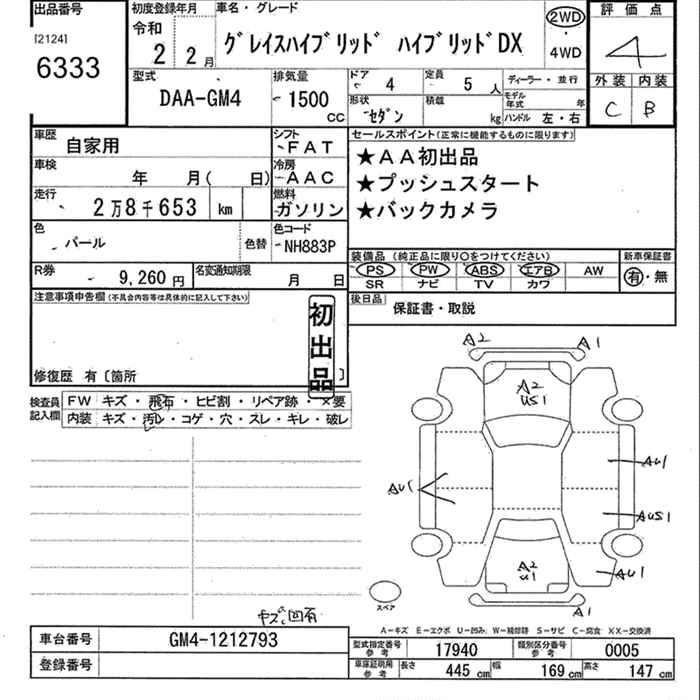 出品番号
[2124]
6333
初度登録年月
令和
2 年 2 月
車名・グレード
グレイスハイブリッド ハイブリッドDX
2WD
・
4WD
評価点
4
外装 内装
C B
型式
DAA-GM4
排気量
1500 CC
ドア
4
定員
5 人
形状
セダン
積載
kg
ディーラー・並行
モデル年式 年
ハンドル 左・右
車歴
自家用
シフト
FAT
車検
年 月( 日)
冷房
AAC
走行
2万8千653 km
燃料
ガソリン
色
パール
色替
色コード
NH883P
R券
9,260 円
名変通知期限
月 日
セールスポイント(正常に機能するものに限ります)
★AA初出品
★プッシュスタート
★バックカメラ
装備品 (純正品に限り○をつけてください)
PS PW ABS エアB AW
SR ナビ TV カワ
新車保証書
有・無
後日品
保証書・取説
注意事項申告欄(不具合内容等は具体的に記入して下さい)
初出品
修復歴 有〔箇所 〕
検査員記入欄
FW キズ・飛石・ヒビ割・リペア跡・×要
内装 キズ・汚レ・コゲ・穴・スレ・キレ・破レ
A2 A1
A2
US1
AU1
AU1
AUS1
A2
U1
AU1
A1
スペア
キズ 固有
A-キズ E-エクボ U-凹み W-補修跡 S-サビ C-腐食 XX-交換済
車台番号
GM4-1212793
登録番号
型式指定番号 参考
17940
類別区分番号 参考
0005
車庫証明用 参考
長さ 445 cm 幅 169 cm 高さ 147 cm